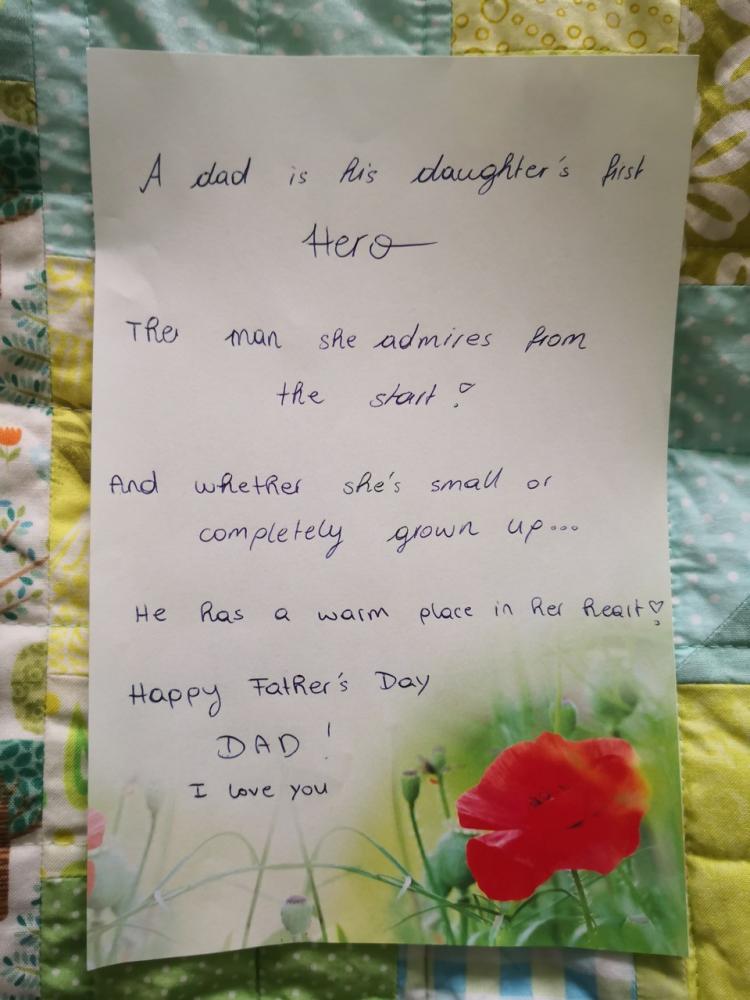 A dad is his daughter's first
Hero
The man she admires from
the start♡
And whether she's small or
completely grown up...
He has a warm place in her heart♡
Happy Father's Day
DAD!
I love you